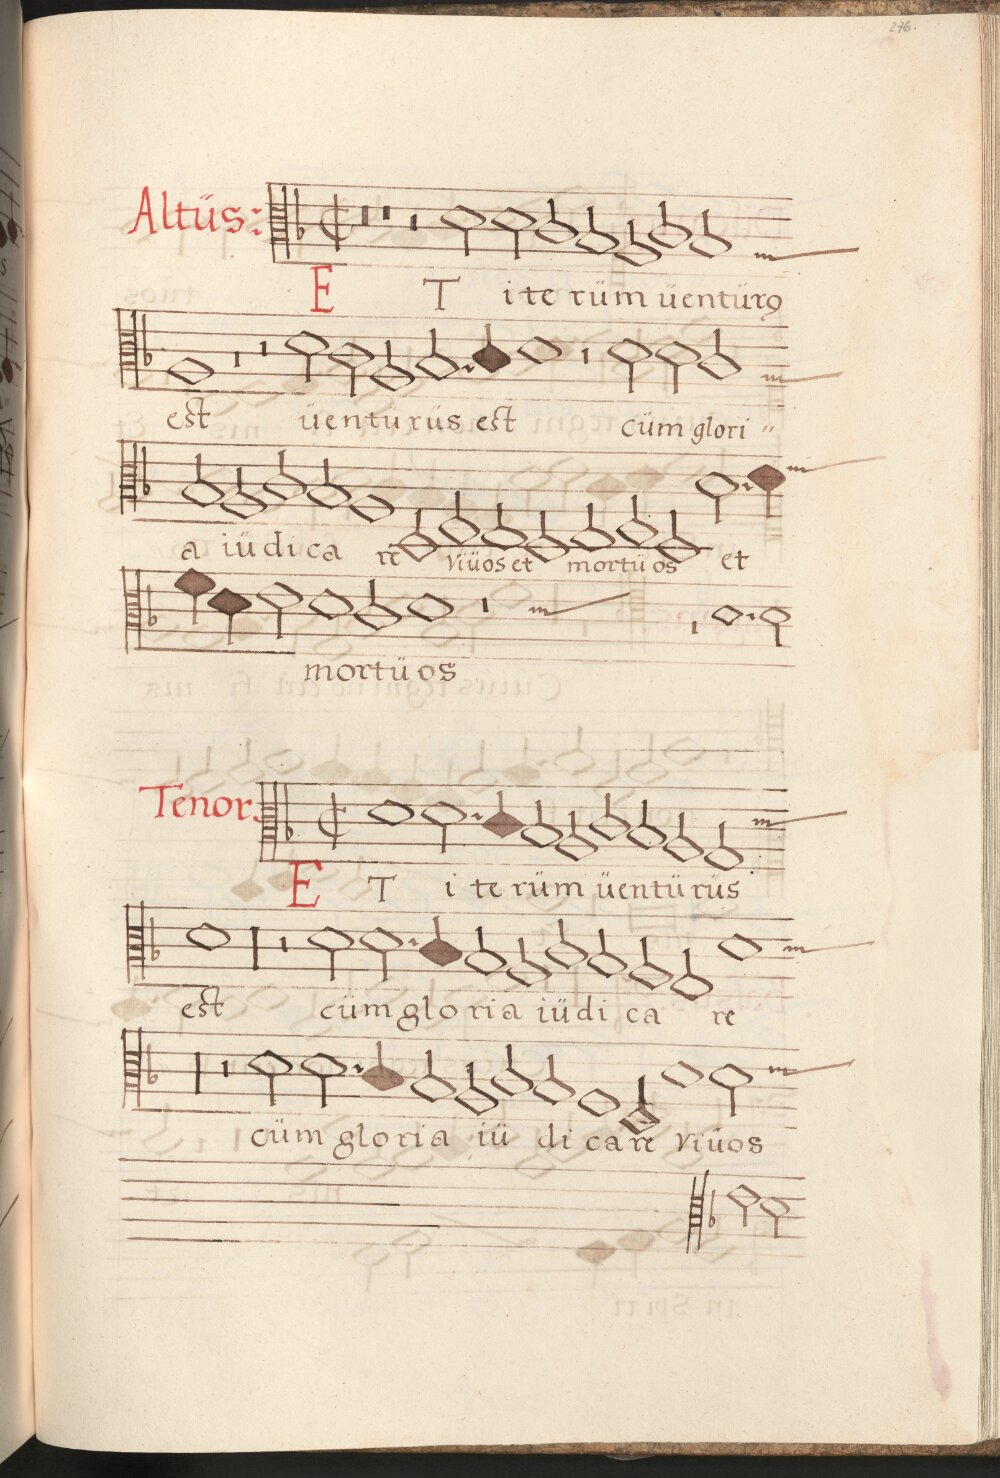 276.
Altüs:
E T iterüm üentürꝯ
est üenturüs est cüm glori "
a iüdica re viüos et mortüos et
mortüos
Tenor.
E T iterüm üentürüs
est cüm gloria iüdica re
cüm gloria iüdicare viüos